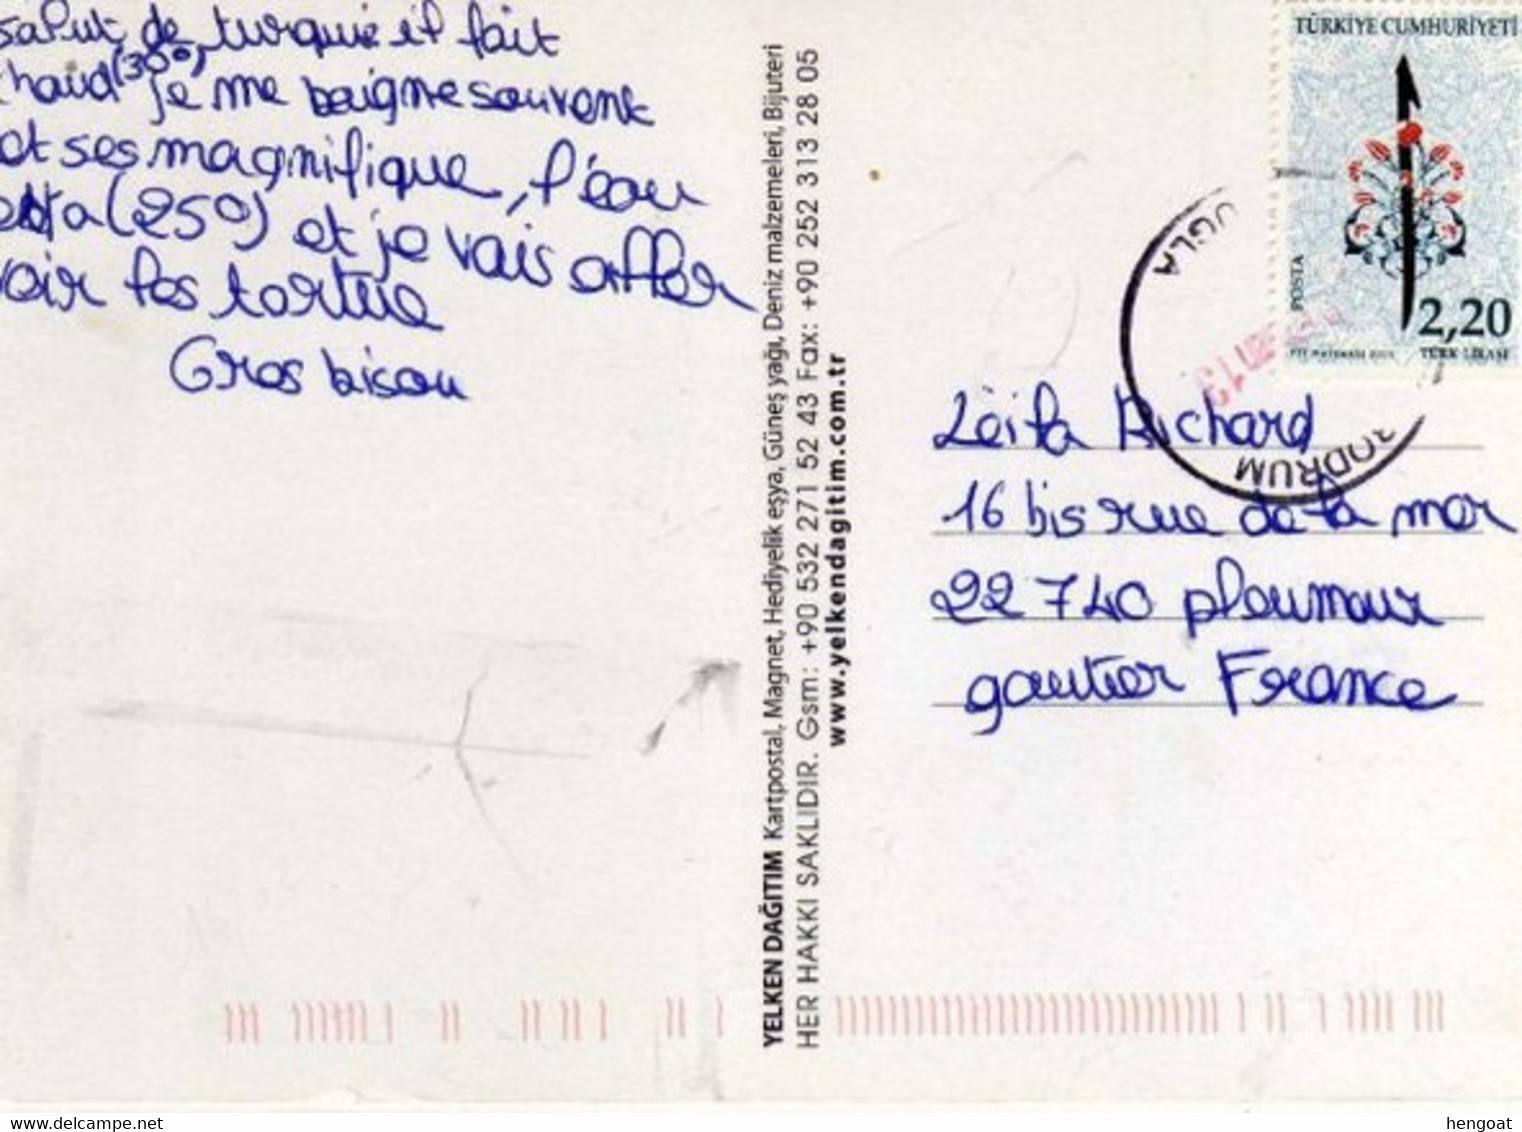 salut de turquie il fait
chaud (30°) je me baigne souvent
et ses magnifique, l'éau
(25°) et je vais aller
voir les tortue
Gros bisou
YELKEN DAĞITIM Kartpostal, Magnet, Hediyelik eşya, Güneş yağı, Deniz malzemeleri, Bijuteri
HER HAKKI SAKLIDIR. Gsm: +90 532 271 52 43 Fax: +90 252 313 28 05
www.yelkendagitim.com.tr
TÜRKİYE CUMHURİYETİ
POSTA
2,20
TÜRK LİRASI
UGLA
BODRUM
13
Léïla Richard
16 bis rue de la mer
22740 pleumeur
gautier France
hengoat